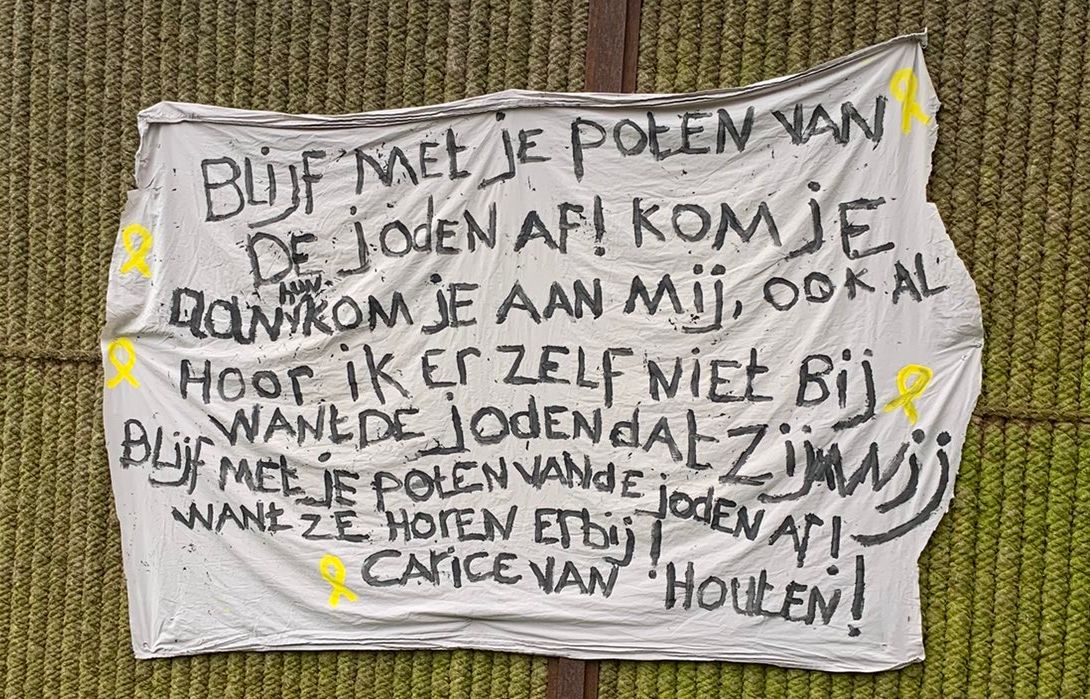 BLIJF MET JE POTEN VAN
DE JODEN AF! KOM JE
AAN HUN KOM JE AAN MIJ, OOK AL
HOOR IK ER ZELF NIET BIJ
WANT DE JODEN dAT ZIJN WIJ
BLIJF MET JE POTEN VAN dE JODEN AF!
WANT ZE HOREN ERbij!
CARICE VAN HOUTEN!